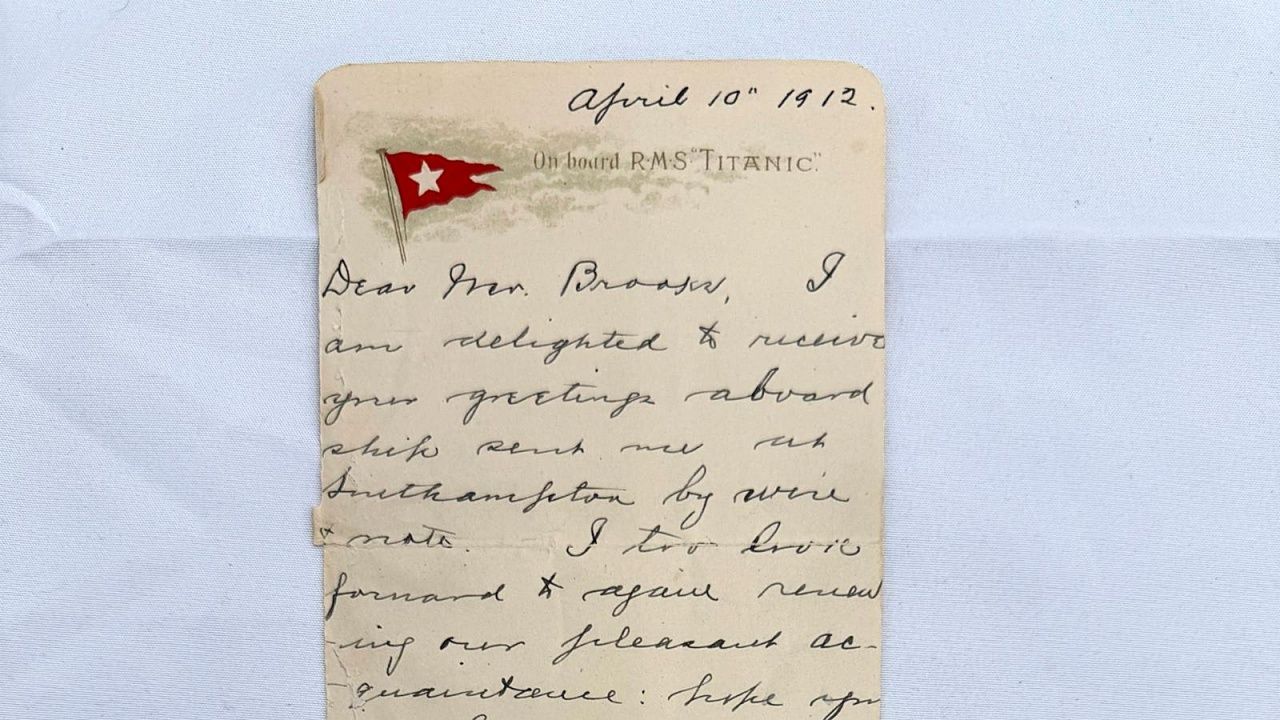 April 10" 1912.
On board R·M·S "TITANIC".
Dear Mr. Brooks, I
am delighted to receive
your greetings aboard
ship sent me at
Southampton by wire
& note. I too look
forward to again renew
-ing our pleasant ac-
-quaintance: hope you